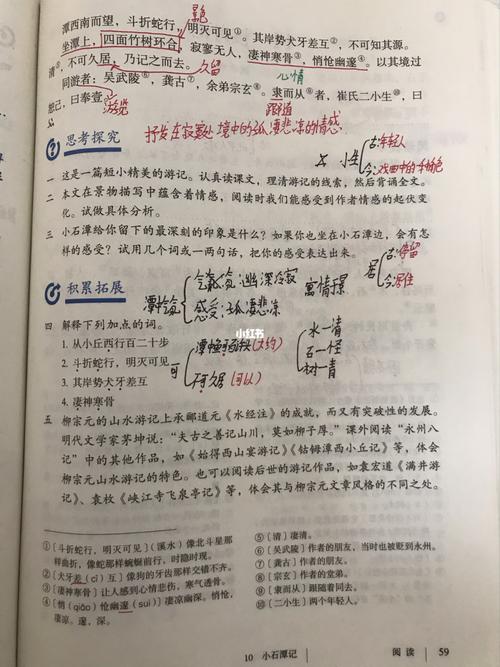 潭西南而望，斗折蛇行，明灭可见①。其岸势犬牙差互②，不可知其源。
坐潭上，四面竹树环合，寂寥无人，凄神寒骨③，悄怆幽邃④。以其境过
清⑤，不可久居，乃记之而去。久留
心情
同游者：吴武陵⑥，龚古⑦，余弟宗玄⑧。隶而从⑨者，崔氏二小生⑩，曰
恕己，曰奉壹。游览
跟随
抒发在寂寥处境中的孤凄悲凉的情感
思考探究
小生
古:年轻人
今:戏曲中的一种角色
一 这是一篇短小精美的游记。认真读课文，理清游记的线索，然后背诵全文。
二 本文在景物描写中蕴含着情感，阅读时我们能感受到作者情感的起伏变
化。试做具体分析。
三 小石潭给你留下的最深刻的印象是什么？如果你也坐在小石潭边，会有怎
样的感受？试用几个词或一两句话，把你的感受表达出来。
居
古:停留
今:居住
积累拓展
气氛:幽深冷寂
感受:孤凄悲凉
寓情于景
四 解释下列加点的词。
1. 从小丘西行百二十步
2. 斗折蛇行，明灭可见
3. 其岸势犬牙差互
4. 凄神寒骨
可
(大约)
不可久居(可以)
水—清
石—怪
树—青
小红书
五 柳宗元的山水游记上承郦道元《水经注》的成就，而又有突破性的发展。
明代文学家茅坤说：“夫古之善记山川，莫如柳子厚。”课外阅读“永州八
记”中的其他作品，如《始得西山宴游记》《钴鉧潭西小丘记》等，体会
柳宗元山水游记的特色。也可以阅读后世的游记作品，如袁宏道《满井游
记》、袁枚《峡江寺飞泉亭记》等，体会其与柳宗元文章风格的不同之处。
①〔斗折蛇行，明灭可见〕（溪水）像北斗星那
样曲折，像蛇那样蜿蜒前行，时隐时现。
②〔犬牙差（cī）互〕像狗的牙齿那样交错不齐。
③〔凄神寒骨〕让人感到心情悲伤，寒气透骨。
④〔悄（qiǎo）怆幽邃（suì）〕凄凉幽深。悄怆，
凄凉。邃，深。
⑤〔清〕凄清。
⑥〔吴武陵〕作者的朋友，当时也被贬到永州。
⑦〔龚古〕作者的朋友。
⑧〔宗玄〕作者的堂弟。
⑨〔隶而从〕跟随着同去。
⑩〔二小生〕两个年轻人。
10 小石潭记
阅读 59